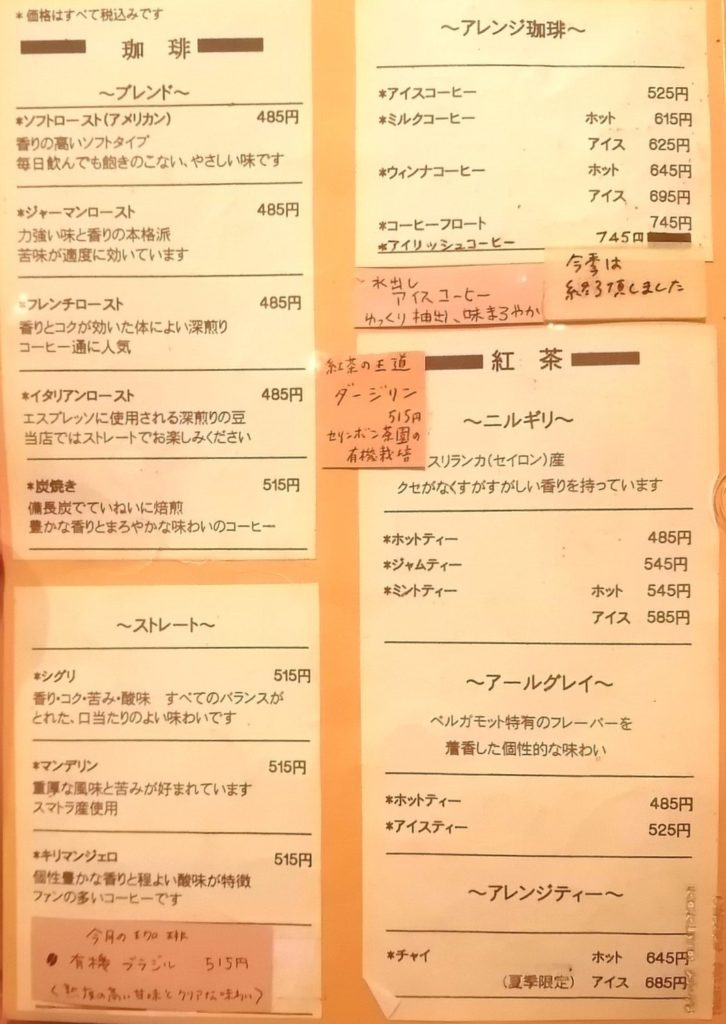 *価格はすべて税込みです
珈琲
～ブレンド～
*ソフトロースト(アメリカン) 485円
香りの高いソフトタイプ
毎日飲んでも飽きのこない、やさしい味です
*ジャーマンロースト 485円
力強い味と香りの本格派
苦味が適度に効いています
*フレンチロースト 485円
香りとコクが効いた体によい深煎り
コーヒー通に人気
*イタリアンロースト 485円
エスプレッソに使用される深煎りの豆
当店ではストレートでお楽しみください
*炭焼き 515円
備長炭でていねいに焙煎
豊かな香りとまろやかな味わいのコーヒー
～ストレート～
*シグリ 515円
香り・コク・苦み・酸味 すべてのバランスが
とれた、口当たりのよい味わいです
*マンデリン 515円
重厚な風味と苦みが好まれています
スマトラ産使用
*キリマンジェロ 515円
個性豊かな香りと程よい酸味が特徴
ファンの多いコーヒーです
今月の珈琲
有機 ブラジル 515円
の高い甘味とクリアな味わい
～アレンジ珈琲～
*アイスコーヒー 525円
*ミルクコーヒー ホット 615円
アイス 625円
*ウィンナコーヒー ホット 645円
アイス 695円
*コーヒーフロート 745円
*アイリッシュコーヒー 745円
水出し
アイスコーヒー
ゆっくり抽出、味まろやか
今季は
終了頂しました
紅茶の王道
ダージリン
515円
セリンボン茶園の
有機栽培
紅茶
～ニルギリ～
スリランカ(セイロン)産
クセがなくすがすがしい香りを持っています
*ホットティー 485円
*ジャムティー 545円
*ミントティー ホット 545円
アイス 585円
～アールグレイ～
ベルガモット特有のフレーバーを
着香した個性的な味わい
*ホットティー 485円
*アイスティー 525円
～アレンジティー～
*チャイ ホット 645円
(夏季限定) アイス 685円